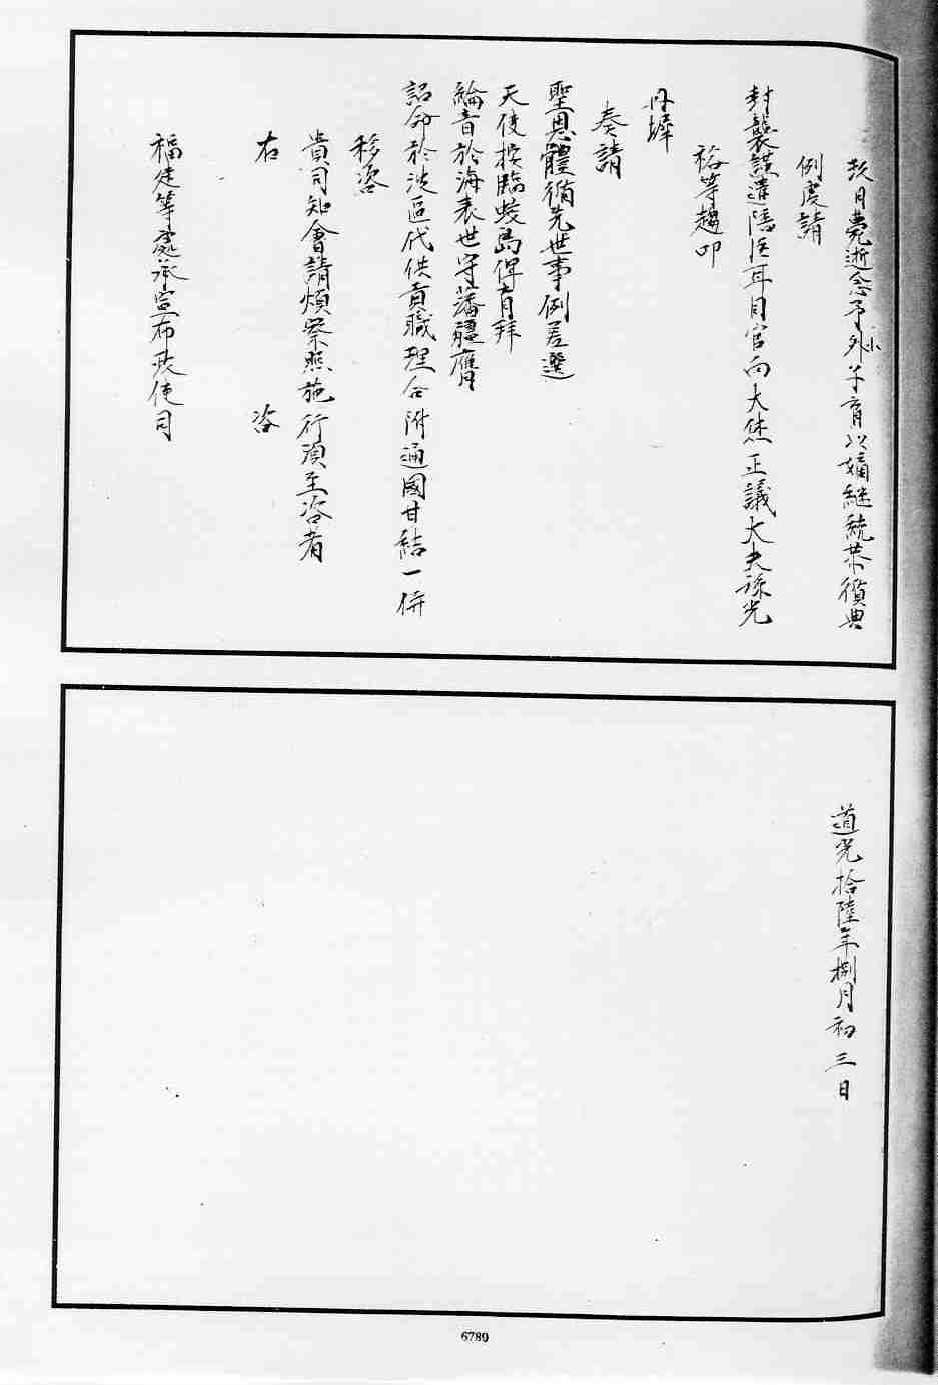 玖月薨逝念予小外子育以嫡繼統恭循典
例虔請
封襲謹遣陪臣耳目官向大烋正議大夫孫光
裕等趨叩
丹墀
奏請
聖恩體循先世事例差選
天使按臨蛟島俾育拜
綸音於海表世守藩疆膺
詔命於波區代供貢職理合附通國甘結一併
移咨
貴司知會請煩察照施行須至咨者
右 咨
福建等處承宣布政使司
道光拾陸年捌月初三日
6789